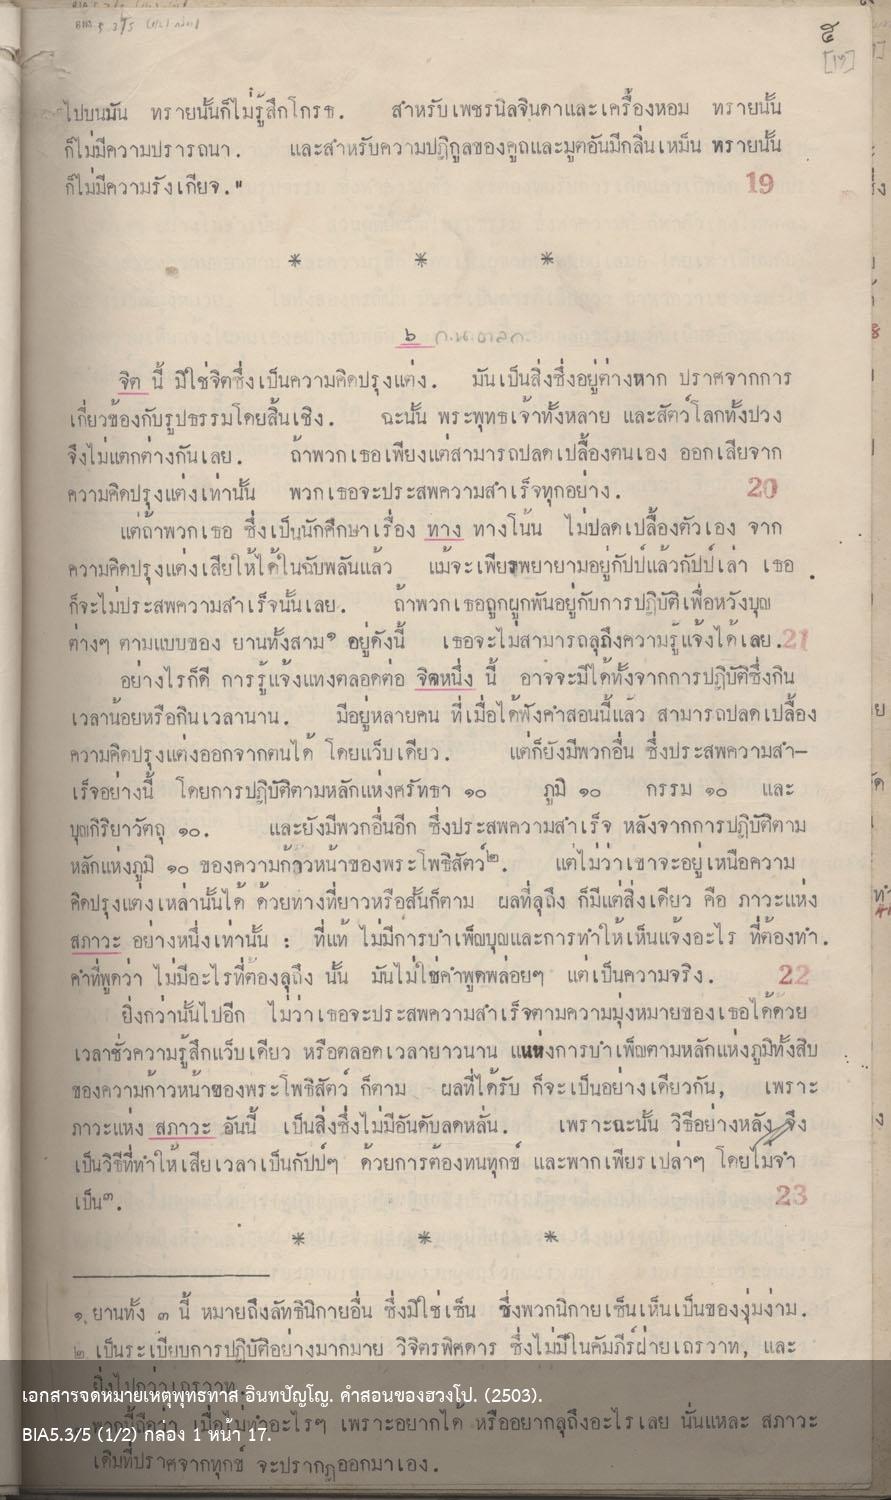 ๕
[17]
ไปบนมัน ทรายนั้นก็ไม่รู้สึกโกรธ. สำหรับเพชรนิลจินดาและเครื่องหอม ทรายนั้น
ก็ไม่มีความปรารถนา. และสำหรับความปฏิกูลของคูถและมูตอันมีกลิ่นเหม็น ทรายนั้น
ก็ไม่มีความรังเกียจ."
19
* * *
๖ ก.น.ตลก.
จิต นี้ มิใช่จิตซึ่งเป็นความคิดปรุงแต่ง. มันเป็นสิ่งซึ่งอยู่ต่างหาก ปราศจากการ
เกี่ยวข้องกับรูปธรรมโดยสิ้นเชิง. ฉะนั้น พระพุทธเจ้าทั้งหลาย และสัตว์โลกทั้งปวง
จึงไม่แตกต่างกันเลย. ถ้าพวกเธอเพียงแต่สามารถปลดเปลื้องตนเอง ออกเสียจาก
ความคิดปรุงแต่งเท่านั้น พวกเธอจะประสพความสำเร็จทุกอย่าง.
20
แต่ถ้าพวกเธอ ซึ่งเป็นนักศึกษาเรื่อง ทาง ทางโน้น ไม่ปลดเปลื้องตัวเอง จาก
ความคิดปรุงแต่งเสียให้ได้ในฉับพลันแล้ว แม้จะเพียรพยายามอยู่กัปป์แล้วกัปป์เล่า เธอ
ก็จะไม่ประสพความสำเร็จนั้นเลย. ถ้าพวกเธอถูกผูกพันอยู่กับการปฏิบัติเพื่อหวังบุญ
ต่างๆ ตามแบบของ ยานทั้งสาม๑ อยู่ดังนี้ เธอจะไม่สามารถลุถึงความรู้แจ้งได้เลย. 21
อย่างไรก็ดี การรู้แจ้งแทงตลอดต่อ จิตหนึ่ง นี้ อาจจะมีได้ทั้งจากการปฏิบัติซึ่งกิน
เวลาน้อยหรือกินเวลานาน. มีอยู่หลายคน ที่เมื่อได้ฟังคำสอนนี้แล้ว สามารถปลดเปลื้อง
ความคิดปรุงแต่งออกจากตนได้ โดยแว็บเดียว. แต่ก็ยังมีพวกอื่น ซึ่งประสพความสำ-
เร็จอย่างนี้ โดยการปฏิบัติตามหลักแห่งศรัทธา ๑๐ ภูมิ ๑๐ กรรม ๑๐ และ
บุญกิริยาวัตถุ ๑๐. และยังมีพวกอื่นอีก ซึ่งประสพความสำเร็จ หลังจากการปฏิบัติตาม
หลักแห่งภูมิ ๑๐ ของความก้าวหน้าของพระโพธิสัตว์๒. แต่ไม่ว่าเขาจะอยู่เหนือความ
คิดปรุงแต่งเหล่านั้นได้ ด้วยทางที่ยาวหรือสั้นก็ตาม ผลที่ลุถึง ก็มีแต่สิ่งเดียว คือ ภาวะแห่ง
สภาวะ อย่างหนึ่งเท่านั้น : ที่แท้ ไม่มีการบำเพ็ญบุญและการทำให้เห็นแจ้งอะไร ที่ต้องทำ.
คำที่พูดว่า ไม่มีอะไรที่ต้องลุถึง นั้น มันไม่ใช่คำพูดพล่อยๆ แต่เป็นความจริง.
22
ยิ่งกว่านั้นไปอีก ไม่ว่าเธอจะประสพความสำเร็จตามความมุ่งหมายของเธอได้ด้วย
เวลาชั่วความรู้สึกแว็บเดียว หรือตลอดเวลายาวนาน แห่งการบำเพ็ญตามหลักแห่งภูมิทั้งสิบ
ของความก้าวหน้าของพระโพธิสัตว์ ก็ตาม ผลที่ได้รับ ก็จะเป็นอย่างเดียวกัน, เพราะ
ภาวะแห่ง สภาวะ อันนี้ เป็นสิ่งซึ่งไม่มีอันดับลดหลั่น. เพราะฉะนั้น วิธีอย่างหลัง จึง
เป็นวิธีที่ทำให้เสียเวลาเป็นกัปป์ๆ ด้วยการต้องทนทุกข์ และพากเพียรเปล่าๆ โดยไม่จำ
เป็น๓.
23
* * *
๑. ยานทั้ง ๓ นี้ หมายถึงลัทธินิกายอื่น ซึ่งมิใช่เซ็น ซึ่งพวกนิกายเซ็นเห็นเป็นของงุ่มง่าม.
๒. เป็นระเบียบการปฏิบัติอย่างมากมาย วิจิตรพิศดาร ซึ่งไม่มีในคัมภีร์ฝ่ายเถรวาท, และ
ยิ่งไปกว่าเถรวาท
เอกสารจดหมายเหตุพุทธทาส อินทปัญโญ. คำสอนของฮวงโป. (2503).
พวกนี้ถือว่า เมื่อไม่ทำอะไรๆ เพราะอยากได้ หรืออยากลุถึงอะไรเลย นั่นแหละ สภาวะ
BIA5.3/5 (1/2) กล่อง 1 หน้า 17.
เดิมที่ปราศจากทุกข์ จะปรากฏออกมาเอง.